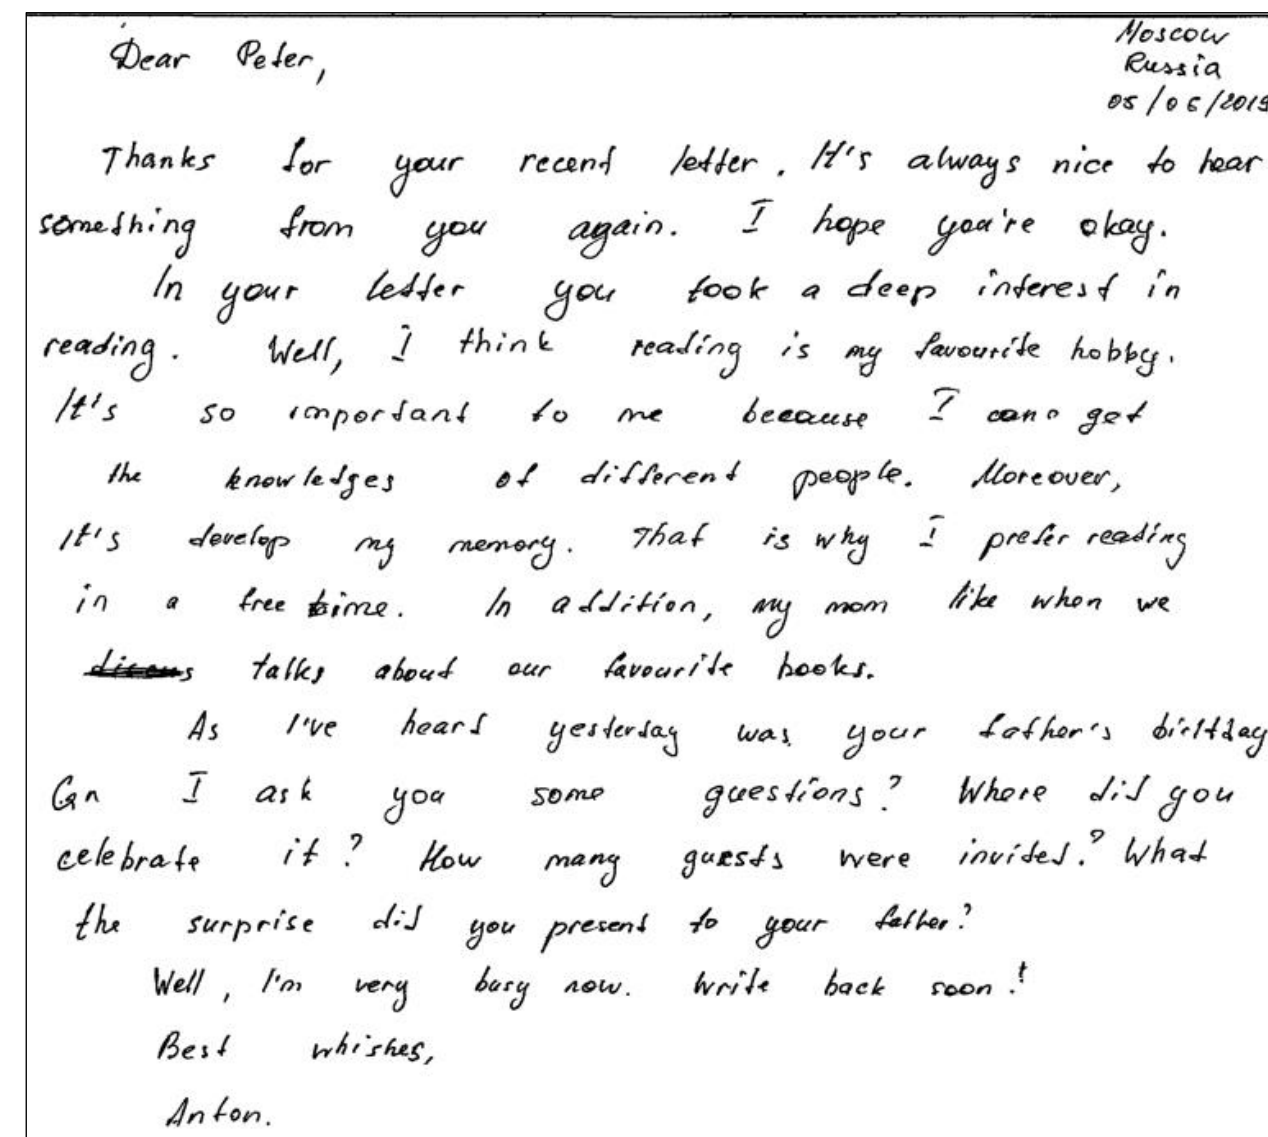 Moscow
Russia
05/06/2019
Dear Peter,
Thanks for your recent letter. It's always nice to hear
something from you again. I hope you're okay.
In your letter you took a deep interest in
reading. Well, I think reading is my favourite hobby.
It's so important to me because I can get
the knowledges of different people. Moreover,
It's develop my memory. That is why I prefer reading
in a free time. In addition, my mom like when we
talks about our favourite books.
As I've heard yesterday was your father's birthday
Can I ask you some questions? Where did you
celebrate it? How many guests were invited? What
the surprise did you present to your father?
Well, I'm very busy now. Write back soon!
Best whishes,
Anton.